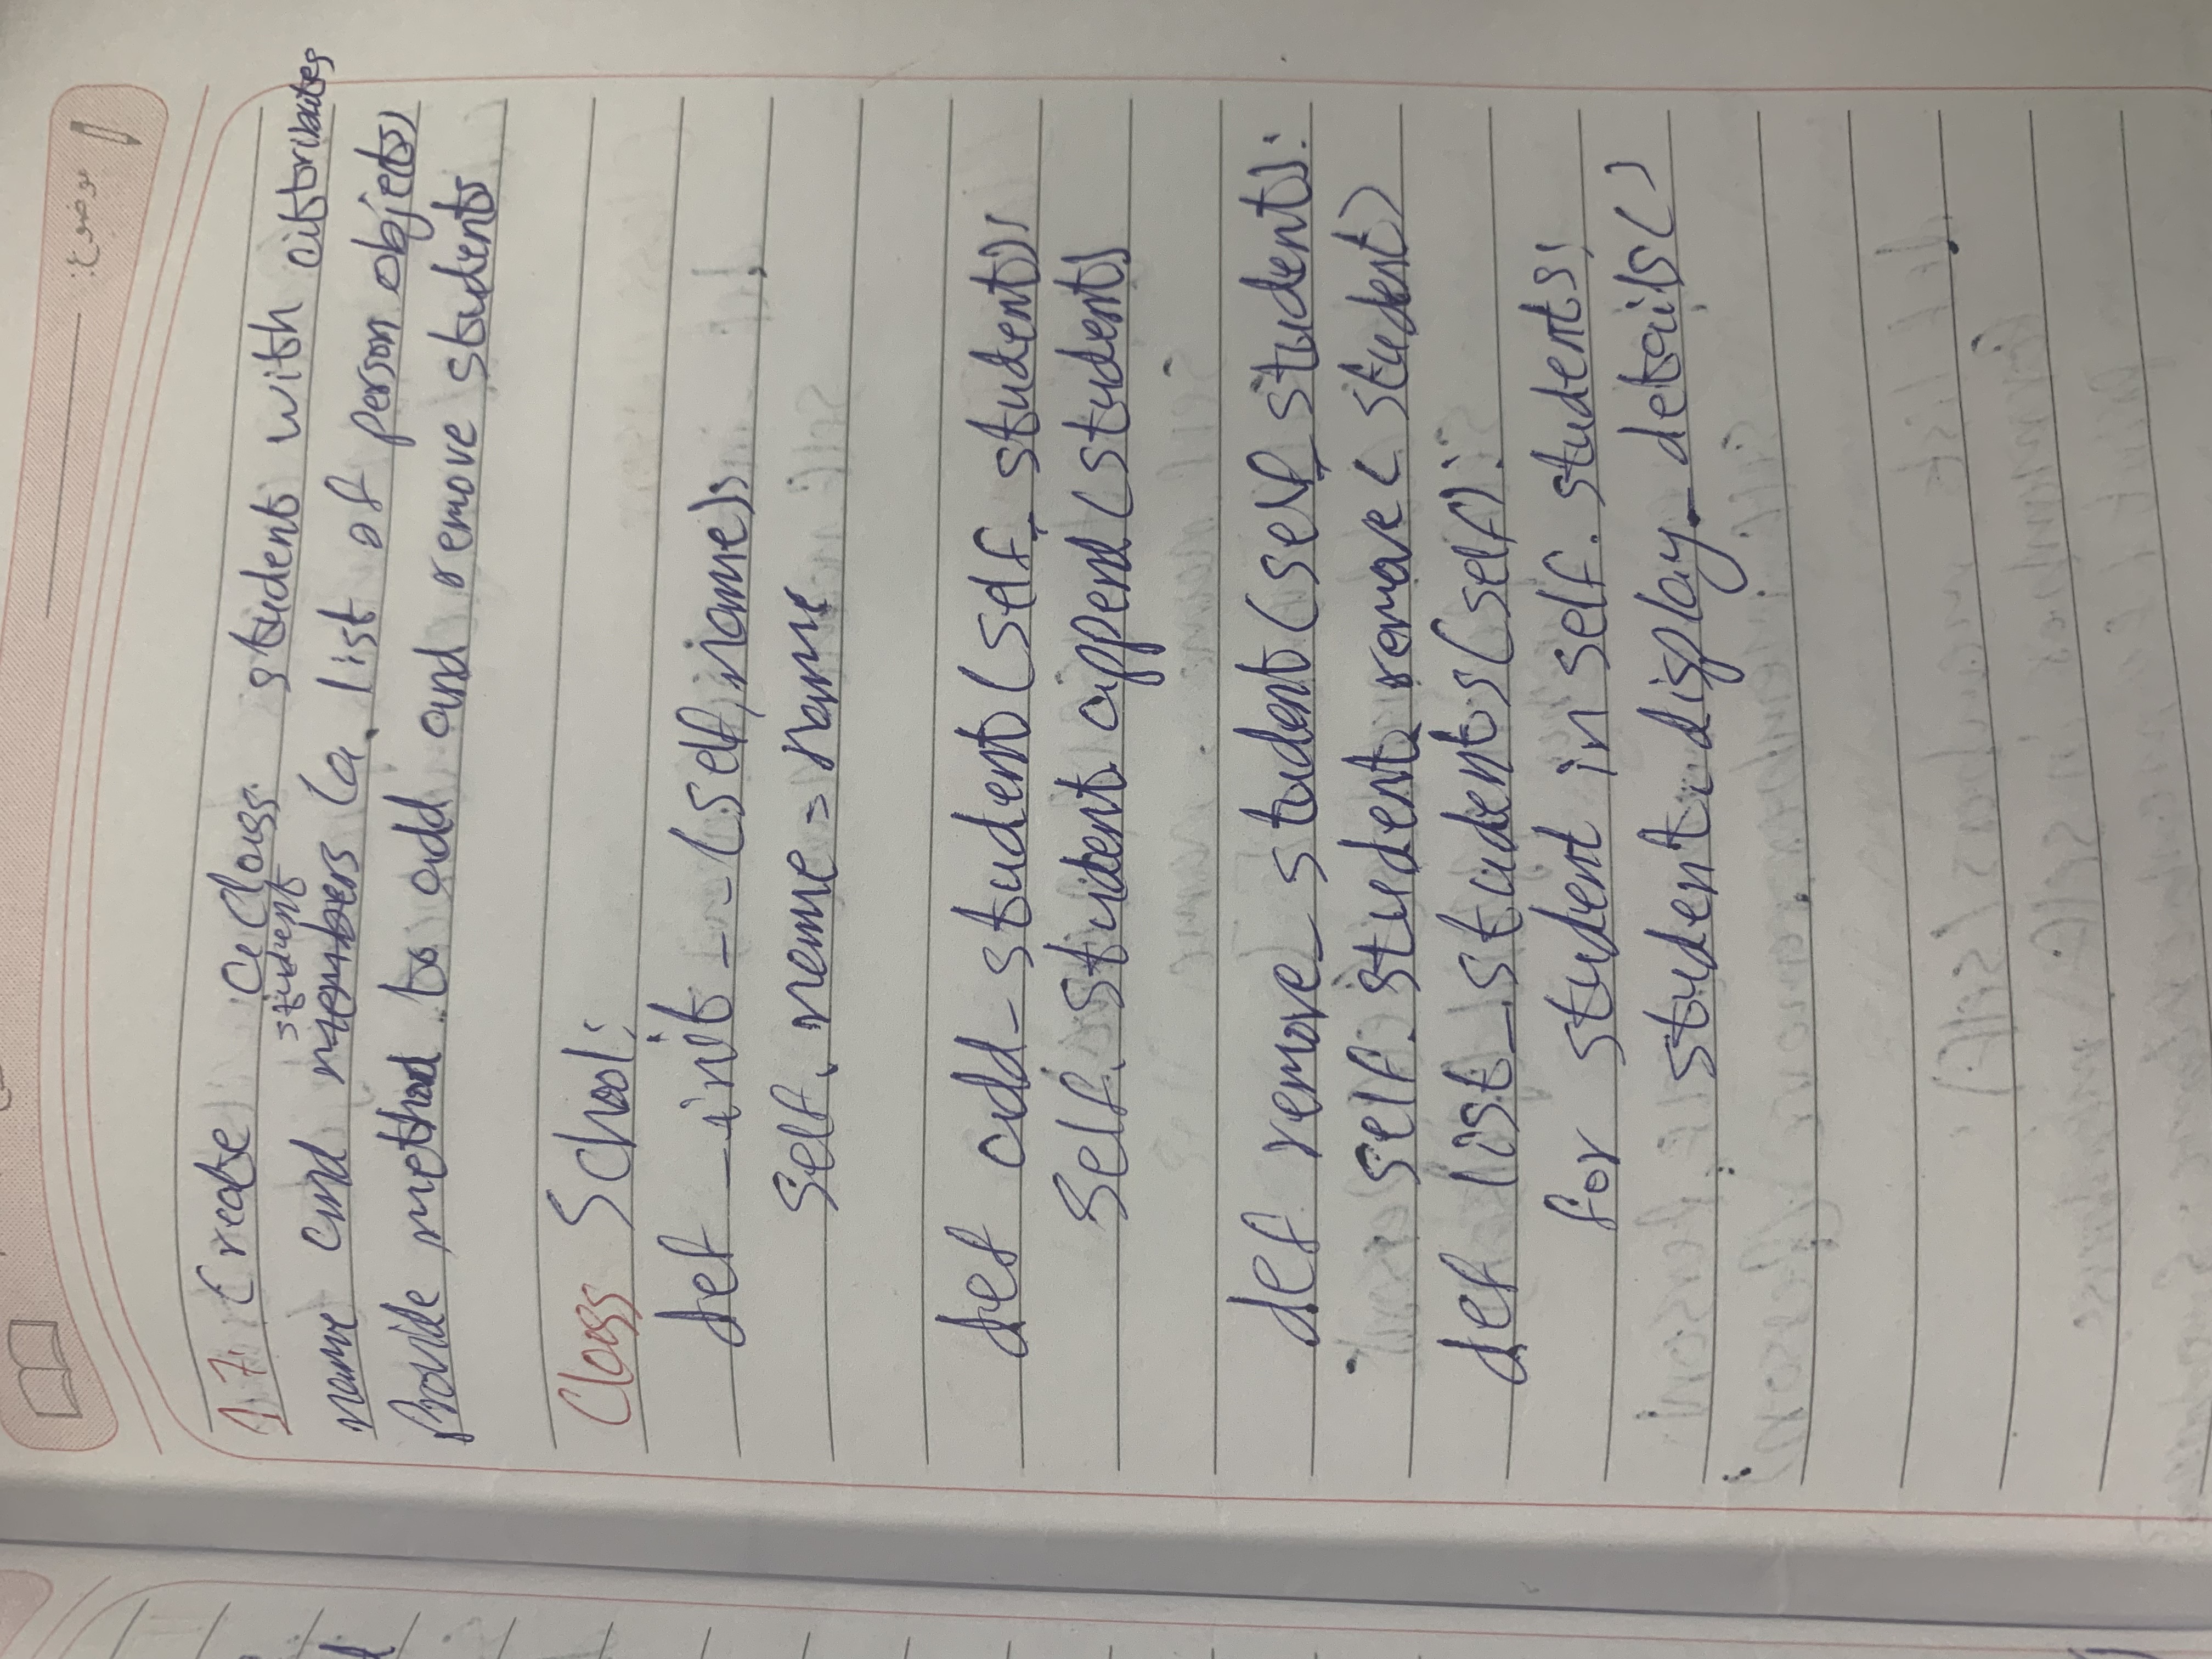 موضوع:
17. Create a class student with attributes
student
name and members (a list of person objects)
Provide method to add and remove students
Class School:
def _init__(self, name):
self. name = name
def add_student(self, student):
self. student. append(student)
def remove_student(self, student):
self. student. remove(student)
def list_students(self):
for student in self. students:
student. display_details()